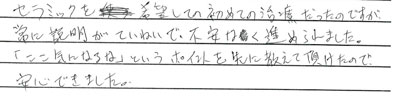 セラミックを希望しての初めての治療だったのですが、
常に説明がていねいで、不安なく進められました。
「ここ気になるな」というポイントを先に教えて頂けたので
安心できました。